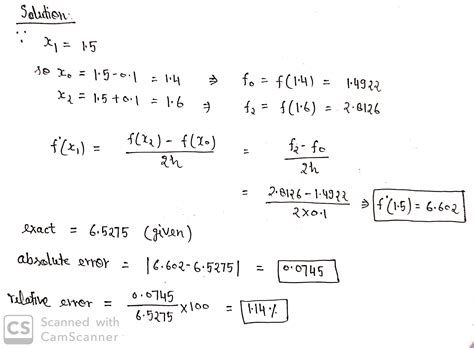 Solution:
∵ x₁ = 1.5
so x₀ = 1.5-0.1 = 1.4 ⇒ f₀ = f(1.4) = 1.4922
x₂ = 1.5+0.1 = 1.6 ⇒ f₂ = f(1.6) = 2.8126
f'(x₁) = f(x₂) - f(x₀) / 2h = f₂-f₀ / 2h
= 2.8126-1.4922 / 2×0.1 ⇒ f'(1.5) = 6.602
exact = 6.5275 (given)
absolute error = |6.602-6.5275| = 0.0745
relative error = 0.0745 / 6.5275 ×100 = 1.14%
CS Scanned with
CamScanner